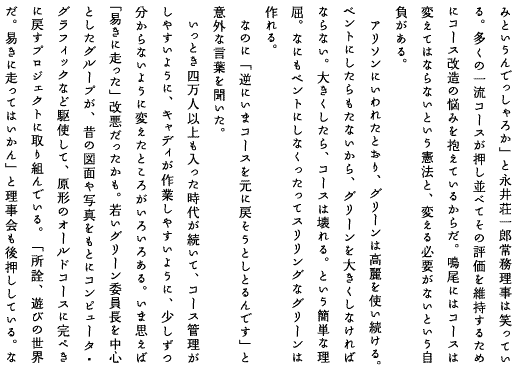 みというんでっしゃろか」と永井荘一郎常務理事は笑ってい
る。多くの一流コースが押し並べてその評価を維持するため
にコース改造の悩みを抱えているからだ。鳴尾にはコースは
変えてはならないという憲法と、変える必要がないという自
負がある。
　アリソンにいわれたとおり、グリーンは高麗を使い続ける。
ベントにしたらもたないから、グリーンを大きくしなければ
ならない。大きくしたら、コースは壊れる。という簡単な理
屈。なにもベントにしなくったってスリリングなグリーンは
作れる。
　なのに「逆にいまコースを元に戻そうとしとるんです」と
意外な言葉を聞いた。
　いっとき四万人以上も入った時代が続いて、コース管理が
しやすいように、キャディが作業しやすいように、少しずつ
分からないように変えたところがいろいろある。いま思えば
「易きに走った」改悪だったかも。若いグリーン委員長を中心
としたグループが、昔の図面や写真をもとにコンピュータ・
グラフィックなど駆使して、原形のオールドコースに完ぺき
に戻すプロジェクトに取り組んでいる。「所詮、遊びの世界
だ。易きに走ってはいかん」と理事会も後押ししている。な